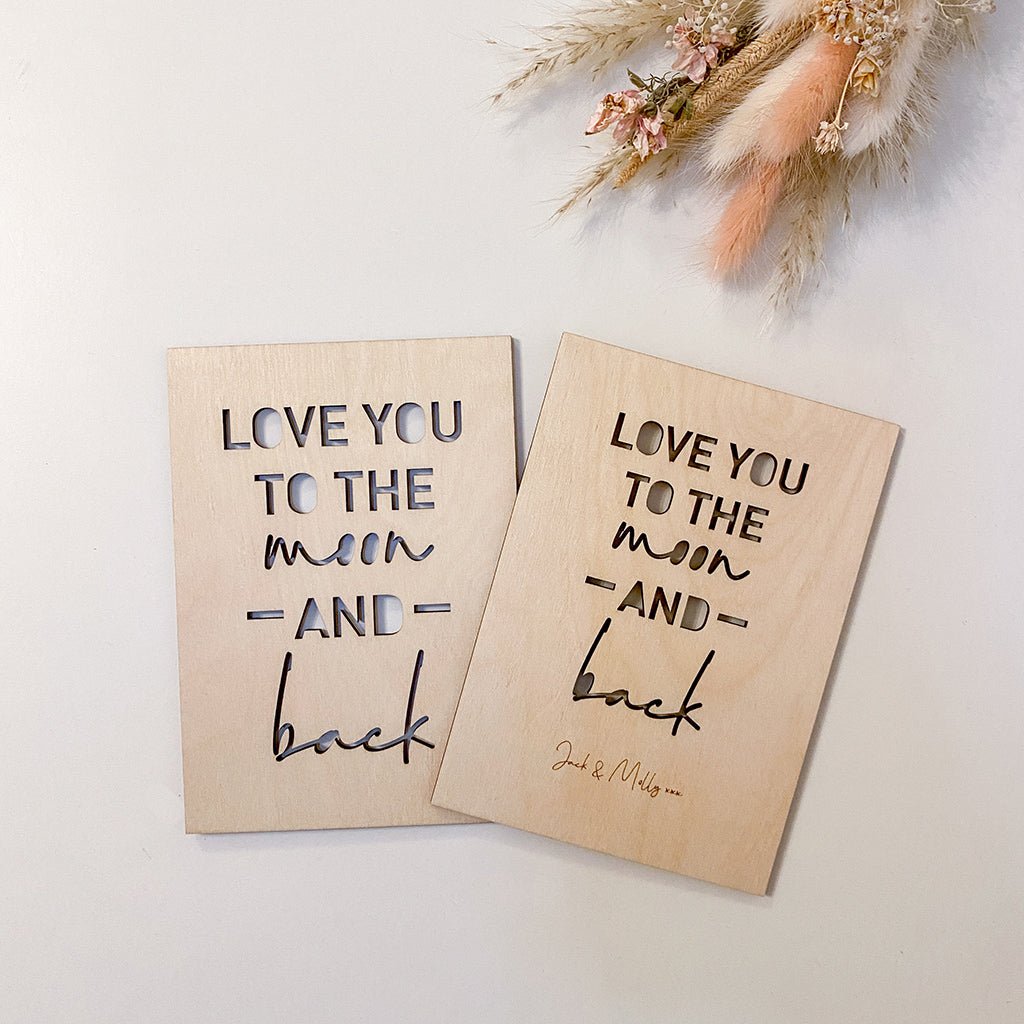 LOVE YOU
TO THE
moon
- AND -
back
LOVE YOU
TO THE
moon
- AND -
back
Jack & Molly xxx